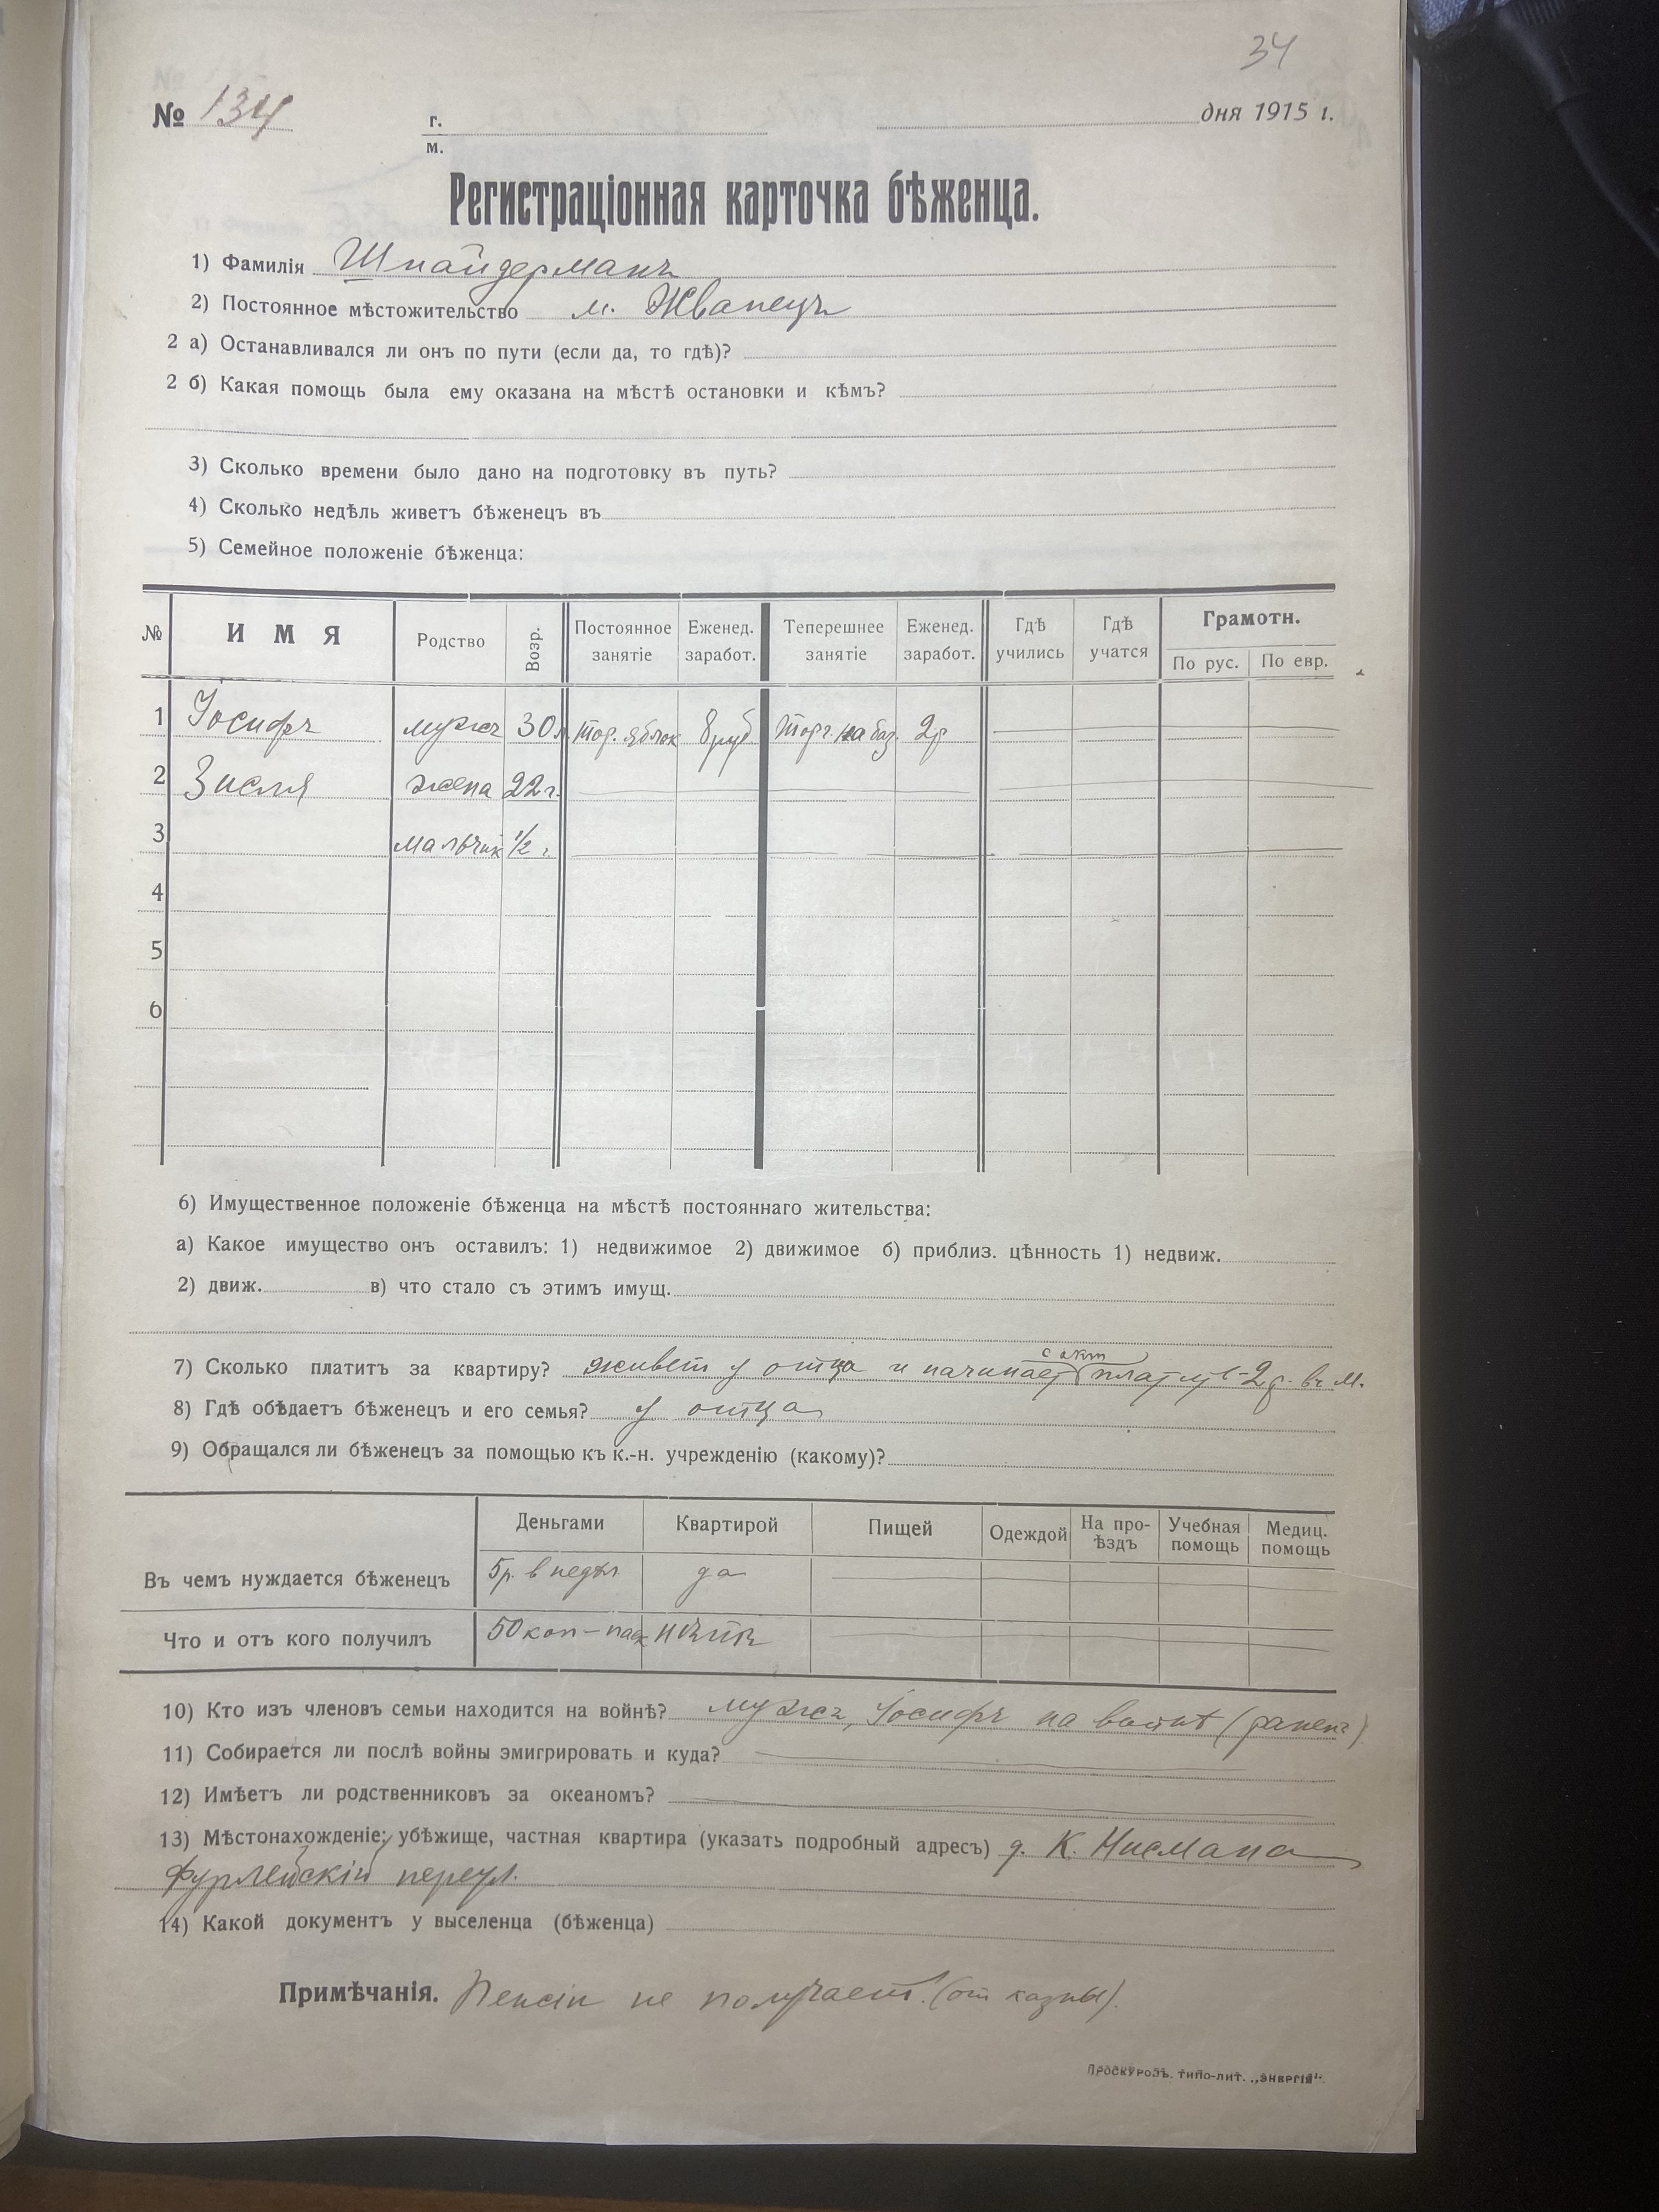 34
№ 134 г. дня 1915 г.
м.
Регистраціонная карточка бѣженца.
1) Фамилія Шпайдерманъ
2) Постоянное мѣстожительство м. Жванецъ
2 а) Останавливался ли онъ по пути (если да, то гдѣ)?
2 б) Какая помощь была ему оказана на мѣстѣ остановки и кѣмъ?
3) Сколько времени было дано на подготовку въ путь?
4) Сколько недѣль живетъ бѣженецъ въ
5) Семейное положеніе бѣженца:
№ ИМЯ Родство Возр. Постоянное занятіе Еженед. заработ. Теперешнее занятіе Еженед. заработ. Гдѣ учились Гдѣ учатся Грамотн. По рус. По евр.
1 Іосифъ мужъ 30 л. тор. яблок 8 руб. торг. на баз. 2 р
2 Зисля жена 22 г.
3 мальчик 1/2 г.
4
5
6
6) Имущественное положеніе бѣженца на мѣстѣ постояннаго жительства:
а) Какое имущество онъ оставилъ: 1) недвижимое 2) движимое б) приблиз. цѣнность 1) недвиж.
2) движ. в) что стало съ этимъ имущ.
с окт
7) Сколько платитъ за квартиру? живет у отца и начинает 2 р. въ м.
8) Гдѣ обѣдаетъ бѣженецъ и его семья? у отца
9) Обращался ли бѣженецъ за помощью къ к.-н. учрежденію (какому)?
Деньгами Квартирой Пищей Одеждой На про-ѣздъ Учебная помощь Медиц. помощь
Въ чемъ нуждается бѣженецъ 5 р. в недѣл да
Что и отъ кого получилъ 50 коп – паек нѣтъ
10) Кто изъ членовъ семьи находится на войнѣ? мужъ, Іосифъ на войнѣ (раненъ)
11) Собирается ли послѣ войны эмигрировать и куда?
12) Имѣетъ ли родственниковъ за океаномъ?
13) Мѣстонахожденіе; убѣжище, частная квартира (указать подробный адресъ) д. К. Нисмана
Фурлейскій переул.
14) Какой документъ у выселенца (бѣженца)
Примѣчанія. Пенсіи не получает. (от казны).
Проскуровъ. типо-лит. „Энергія“.